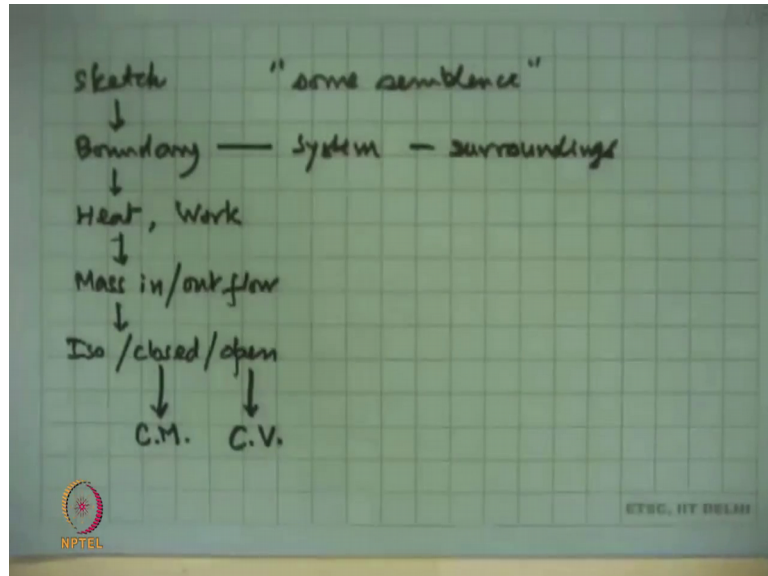 Sketch "some semblence"
↓
Boundary — System — surroundings
↓
Heat, Work
↓
Mass in/out flow
↓
Iso/closed/open
↓ ↓
C.M. C.V.
NPTEL
ETSC, IIT DELHI